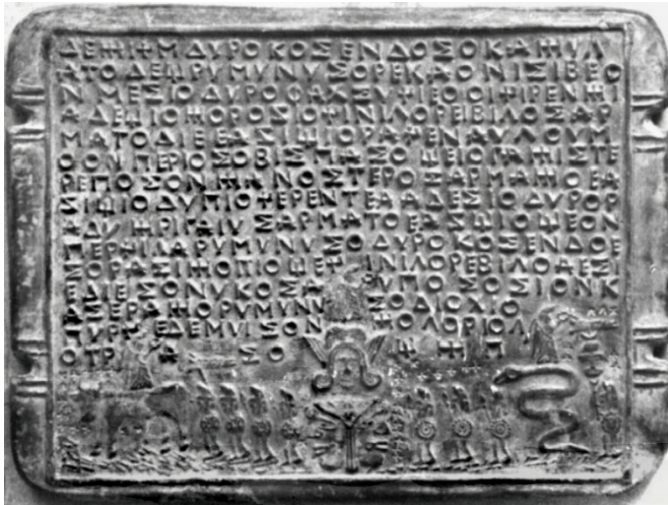 ΔΕΨΙΨΜΔΥΡΟΚΟΣΕΝΔΟΣΟΚΑΨΥΛ
ΑΤΟΔΕΨΡΥΜΥΝΥΣΟΡΕΚΑΟΝΙΣΙΒΕΟ
ΝΜΕΣΙΟΔΥΡΟΦΑΚΣΥΨΙΕΟΟΙΨΙΡΕΝΨΙ
ΑΔΕΨΙΟΨΟΡΟΣΙΟΨΙΝΙΛΟΡΕΙΒΙΛΟΣΑΡ
ΜΑΤΟΔΙΕΕΑΣΙΨΙΟΡΑΨΕΝΑΥΛΟΥΜ
ΟΟΝΠΕΡΙΟΣΟΒΙΣΠΑΣΟΨΕΙΟΓΑΨΙΣΤΕ
ΡΕΠΟΣΟΝΨΑΝΟΣΤΕΡΟΣΑΡΜΑΨΟΕΑ
ΣΙΨΙΟΔΥΠΙΟΨΕΡΕΝΤΕΑΑΔΕΣΙΟΔΥΡΟΡ
ΑΔΥΨΡΙΓΑΙΥΣΑΡΜΑΤΟΕΑΣΨΙΟΨΕΟΝ
ΠΕΡΨΙΛΑΡΥΜΥΝΥΣΟΔΥΡΟΚΟΣΕΝΔΟΕ
ΣΟΡΑΣΙΨΟΠΙΟΨΕΨΙΝΙΛΟΡΕΒΙΛΟΦΕΣΙ
ΕΔΙΕΣΟΝΥΚΟΣΑΥΠΟΣΟΣΙΟΝΚ
ΑΣΕΡΑΨΟΡΥΜΥΝΥΣΟΔΙΣ
ΕΔΕΜΥΙΣΟΝΨΟΛΟΡΙΟΛ
ΟΤΡΑΣΟΨΨΠ